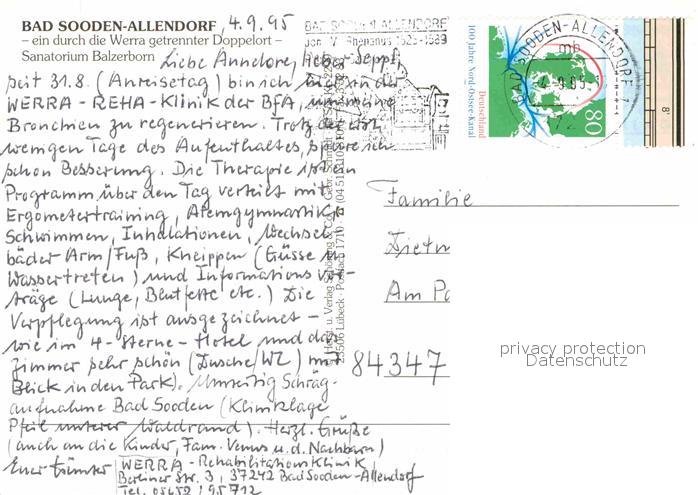 BAD SOODEN-ALLENDORF 4.9.95
– ein durch die Werra getrennter Doppelort –
Sanatorium Balzerborn
Liebe Annelore, lieber Seppl,
seit 31.8. (Anreisetag) bin ich hier in der
WERRA-REHA-Klinik der BfA, um meine
Bronchien zu regenerieren. Trotz der erst
wenigen Tage des Aufenthaltes, spüre ich
schon Besserung. Die Therapie ist ein
Programm über den Tag verteilt mit
Ergometertraining, Atemgymnastik,
Schwimmen, Inhalationen, Wechsel-
bäder Arm/Fuß, Kneippen (Güsse u.
Wassertreten) und Informationsvor-
träge (Lunge, Blutfette etc.) Die
Verpflegung ist ausgezeichnet –
wie im 4-Sterne-Hotel und das
Zimmer sehr schön (Dusche/WC) mit
Blick in den Park). Umseitig Schräg-
aufnahme Bad Sooden (Kliniklage
Pfeil unterer Waldrand). Herzl. Grüße
(auch an die Kinder, Fam. Venus u.d. Nachbarn)
Euer Günter
WERRA-Rehabilitationsklinik
Berliner Str. 3, 37242 Bad Sooden-Allendorf
Tel. 05652/95712
BAD SOODEN-ALLENDORF
Joh. Rhenanus 1525-1589
BAD SOODEN-ALLENDORF
mb
4.9.95
100 Jahre Nord-Ostsee-Kanal
Deutschland
80
8'
Familie
Dietm
Am Pa
84347
privacy protection
Datenschutz